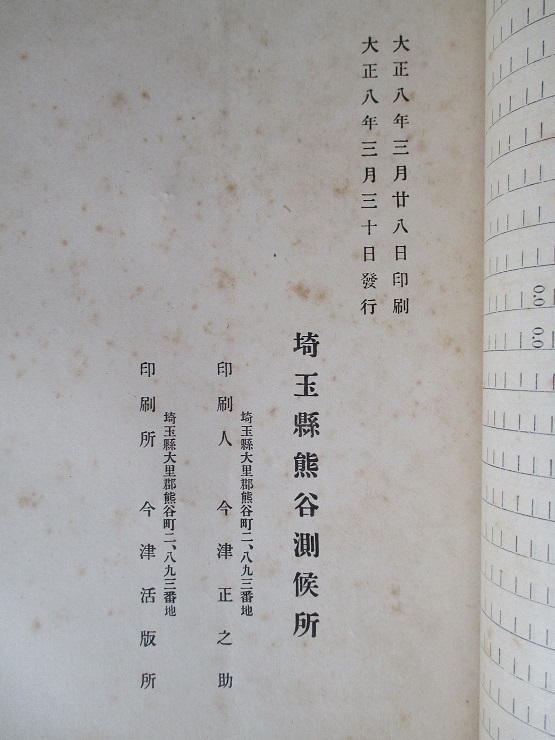 大正八年三月廿八日印刷
大正八年三月三十日發行
埼玉縣熊谷測候所
埼玉縣大里郡熊谷町二、八九三番地
印刷人 今津正之助
埼玉縣大里郡熊谷町二、八九三番地
印刷所 今津活版所
0.0
0.0